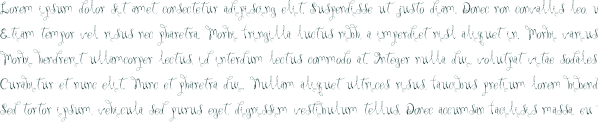 Lorem ipsum dolor sit amet consectetur adipiscing elit. Suspendisse ut justo diam. Donec non convallis leo, v
Etiam tempor vel risus nec pharetra. Morbi fringilla luctus nibh a imperdiet nisl aliquet in. Morbi varius
Morbi hendrerit ullamcorper lectus, id interdum lectus commodo at. Integer nulla dui, volutpat vitae sodales
Curabitur et nunc elit. Nunc et pharetra dui. Nullam aliquet ultrices risus faucibus pretium lorem bibend
Sed tortor ipsum, vehicula sed purus eget, dignissim vestibulum tellus. Donec accumsan facilisis massa, eu